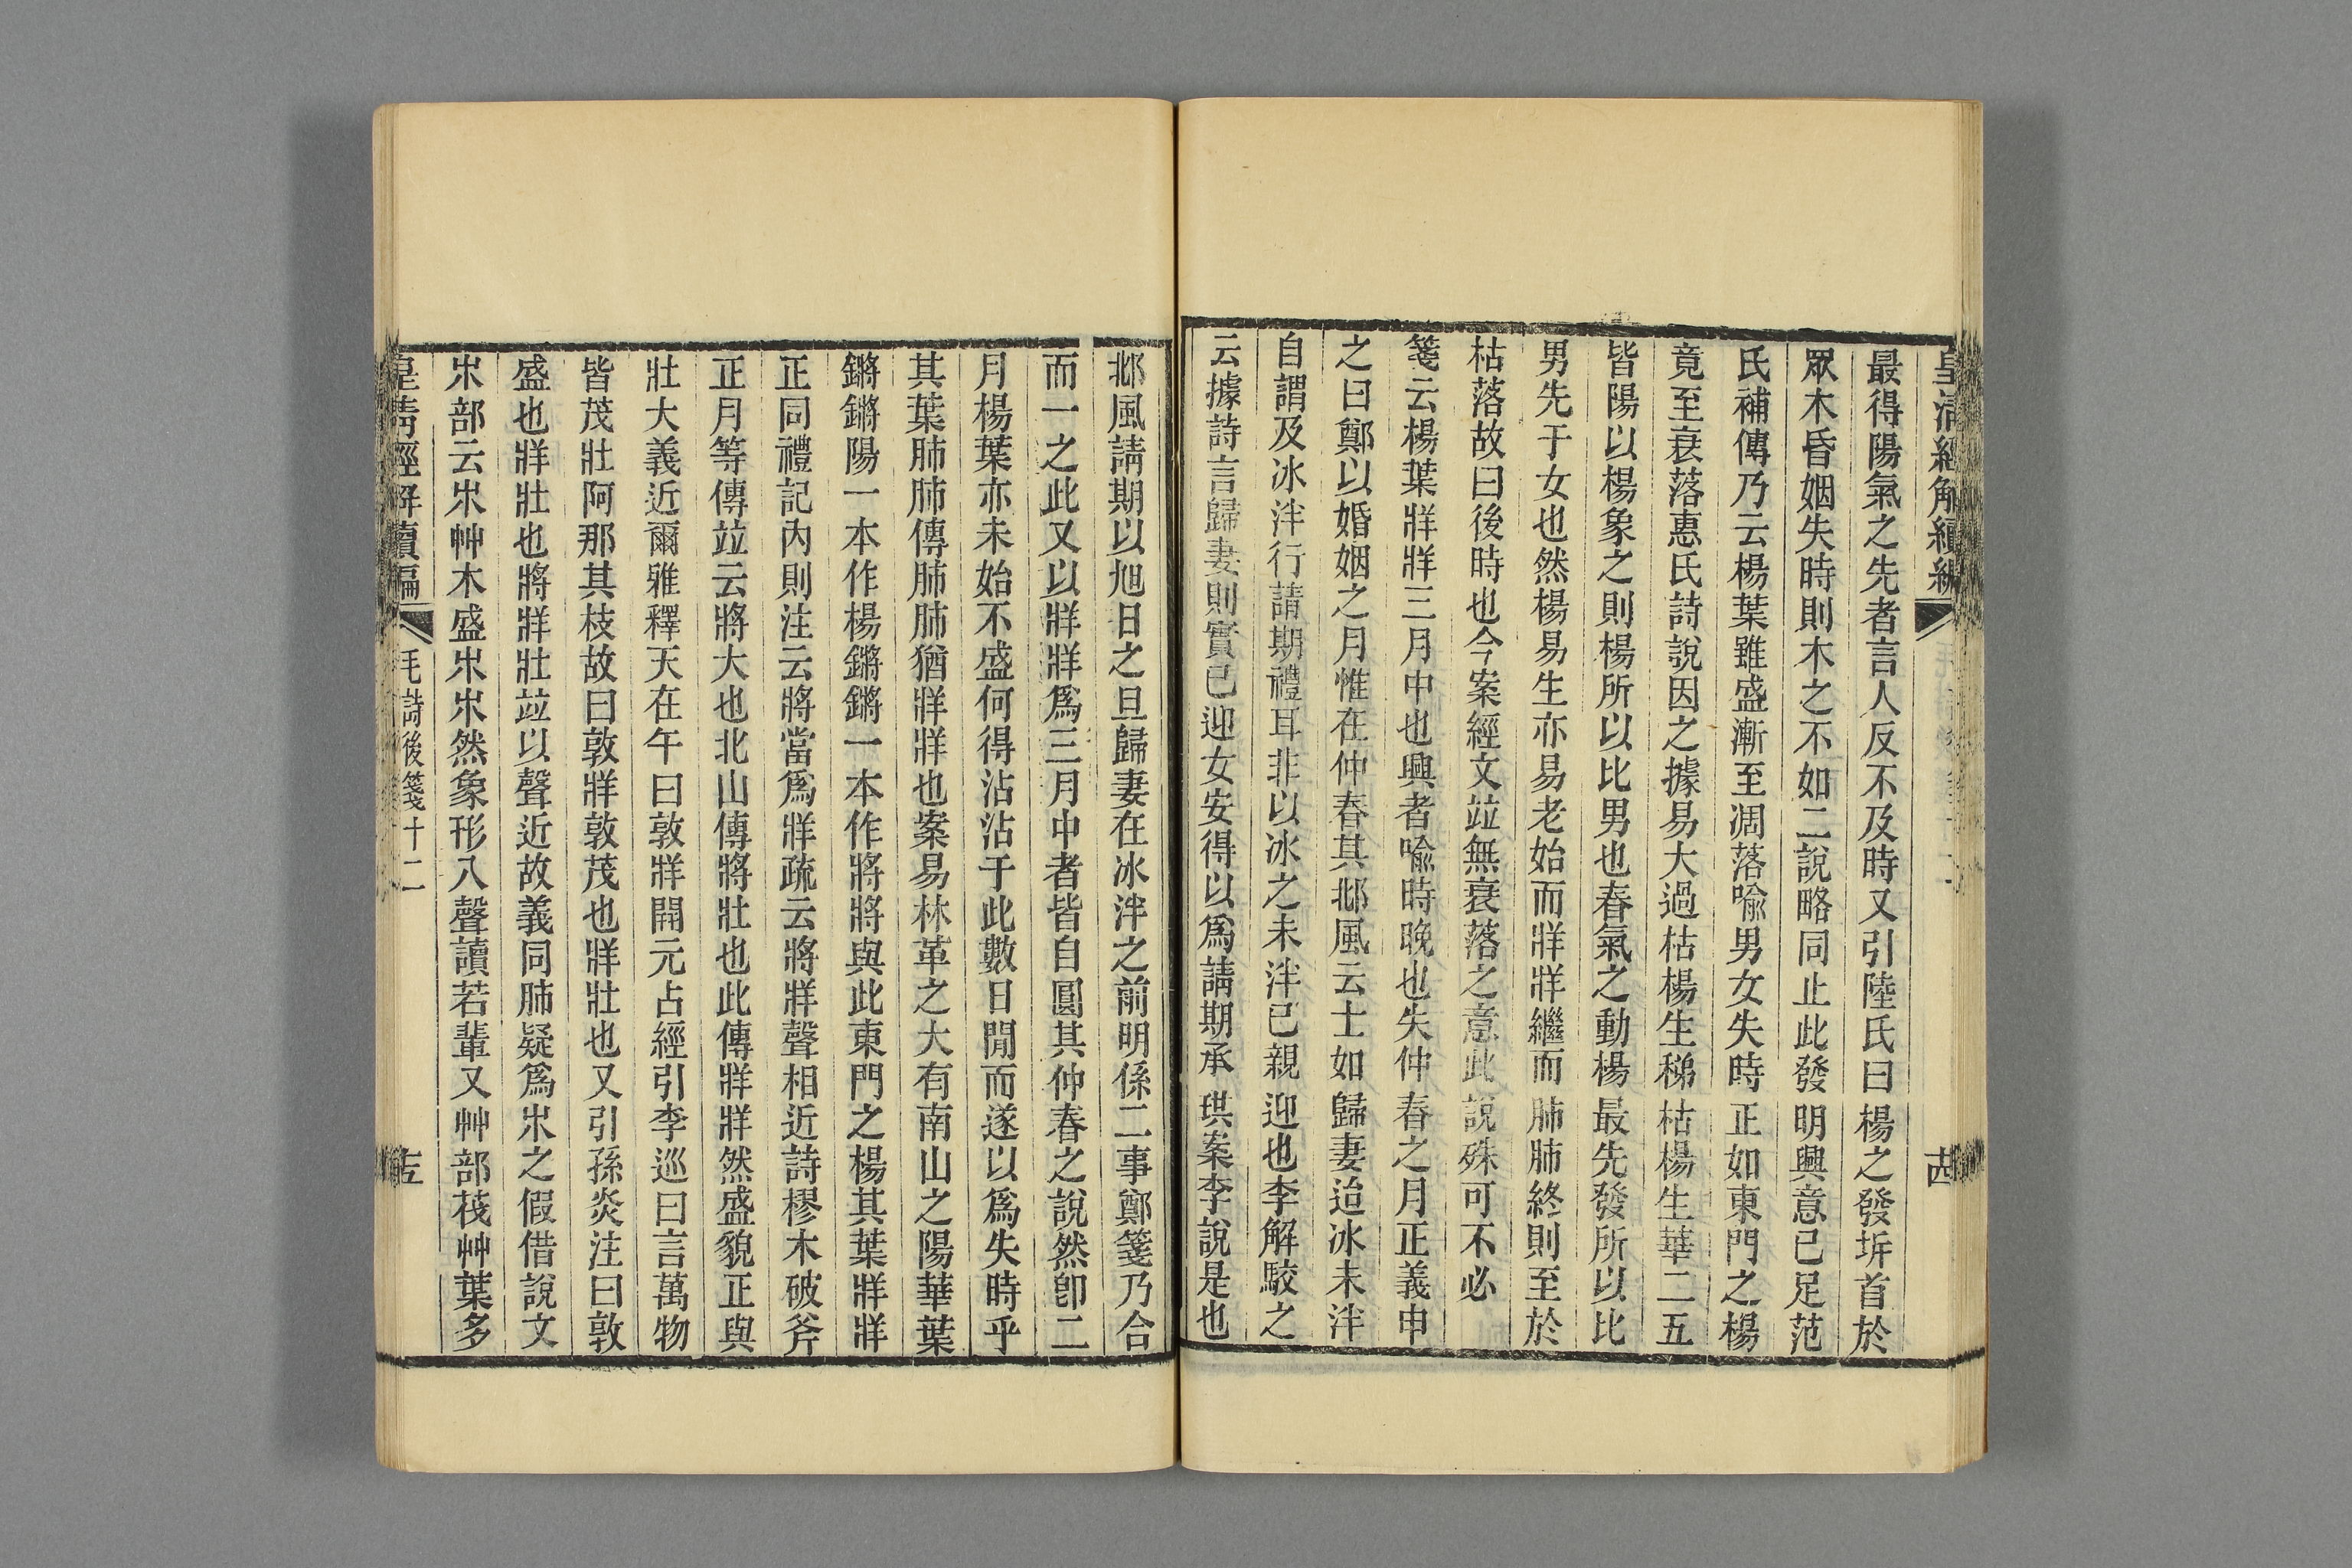 皇清經解續編
西
最得陽氣之先者言人反不及時又引陸氏曰楊之發坼首於
眾木昏姻失時則木之不如二說略同止此發明興意已足范
氏補傳乃云楊葉雖盛漸至凋落喻男女失時正如東門之楊
竟至衰落惠氏詩說因之據易大過枯楊生稊枯楊生華二五
皆陽以楊象之則楊所以比男也春氣之動楊最先發所以比
男先于女也然楊易生亦易老始而牂牂繼而肺肺終則至於
枯落故曰後時也今案經文竝無衰落之意此說殊可不必
箋云楊葉牂牂三月中也興者喻時晚也失仲春之月正義申
之曰鄭以婚姻之月惟在仲春其邶風云士如歸妻迨冰未泮
自謂及冰泮行請期禮耳非以冰之未泮已親迎也李解駮之
云據詩言歸妻則實已迎女安得以爲請期承珙案李說是也
邶風請期以旭日之旦歸妻在冰泮之前明係二事鄭箋乃合
而一之此又以牂牂爲三月中者皆自圓其仲春之說然卽二
月楊葉亦未始不盛何得沾沾于此數日閒而遂以爲失時乎
其葉肺肺傳肺肺猶牂牂也案易林革之大有南山之陽華葉
鏘鏘陽一本作楊鏘鏘一本作將將與此東門之楊其葉牂牂
正同禮記內則注云將當爲牂疏云將牂聲相近詩樛木破斧
正月等傳竝云將大也北山傳將壯也此傳牂牂然盛貌正與
壯大義近爾雅釋天在午曰敦牂開元占經引李巡曰言萬物
皆茂壯阿那其枝故曰敦牂敦茂也牂壯也又引孫炎注曰敦
盛也牂壯也將牂壯竝以聲近故義同肺疑爲𣎵之假借說文
𣎵部云𣎵艸木盛𣎵𣎵然象形八聲讀若輩又艸部茷艸葉多
皇清經解續編
毛詩後箋十二
圡